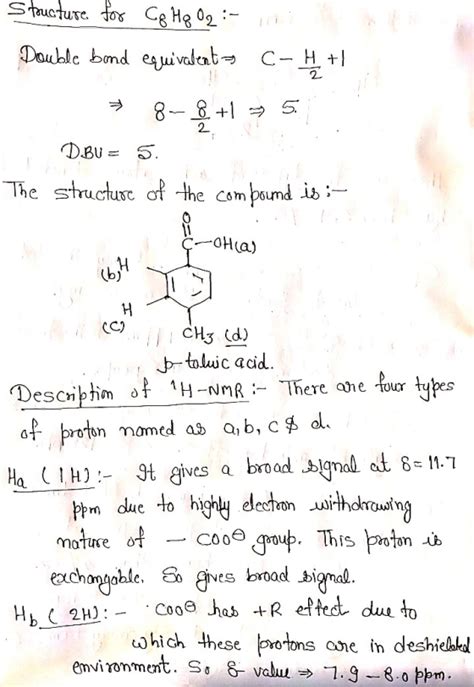 Structure for C8H8O2:-
Double bond equivalent ⇒ C - H/2 + 1
⇒ 8 - 8/2 + 1 ⇒ 5.
D.BU = 5.
The structure of the compound is :-
O
C-OH(a)
(b) H
H
(c)
CH3 (d)
p-toluic acid.
Description of 1H-NMR :- There are four types
of proton named as a, b, c & d.
Ha (1H) :- It gives a broad signal at δ = 11.7
ppm due to highly electron withdrawing
nature of - COO⊖ group. This proton is
exchangable. So gives broad signal.
Hb (2H) :- COO⊖ has +R effect due to
which these protons are in deshielded
environment. So δ value ⇒ 7.9 - 8.0 ppm.